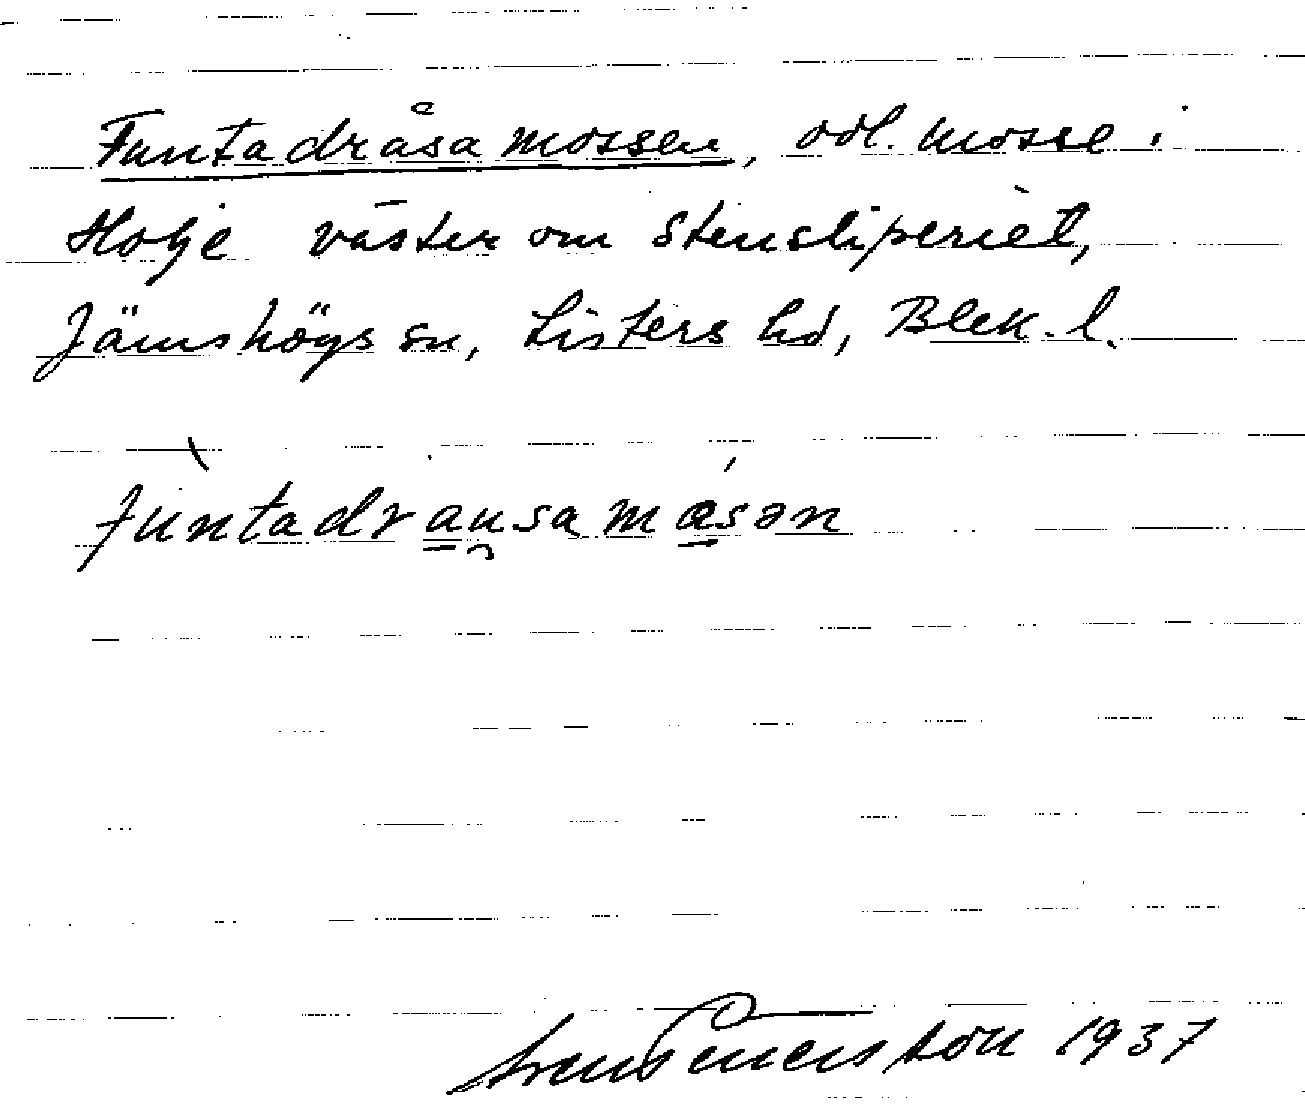 Funtadråsamossen, odl. mosse i
Holje väster om Stensliperiet,
Jämshögs sn, Listers hd, Blek. l.
funtadrausamosən
1937